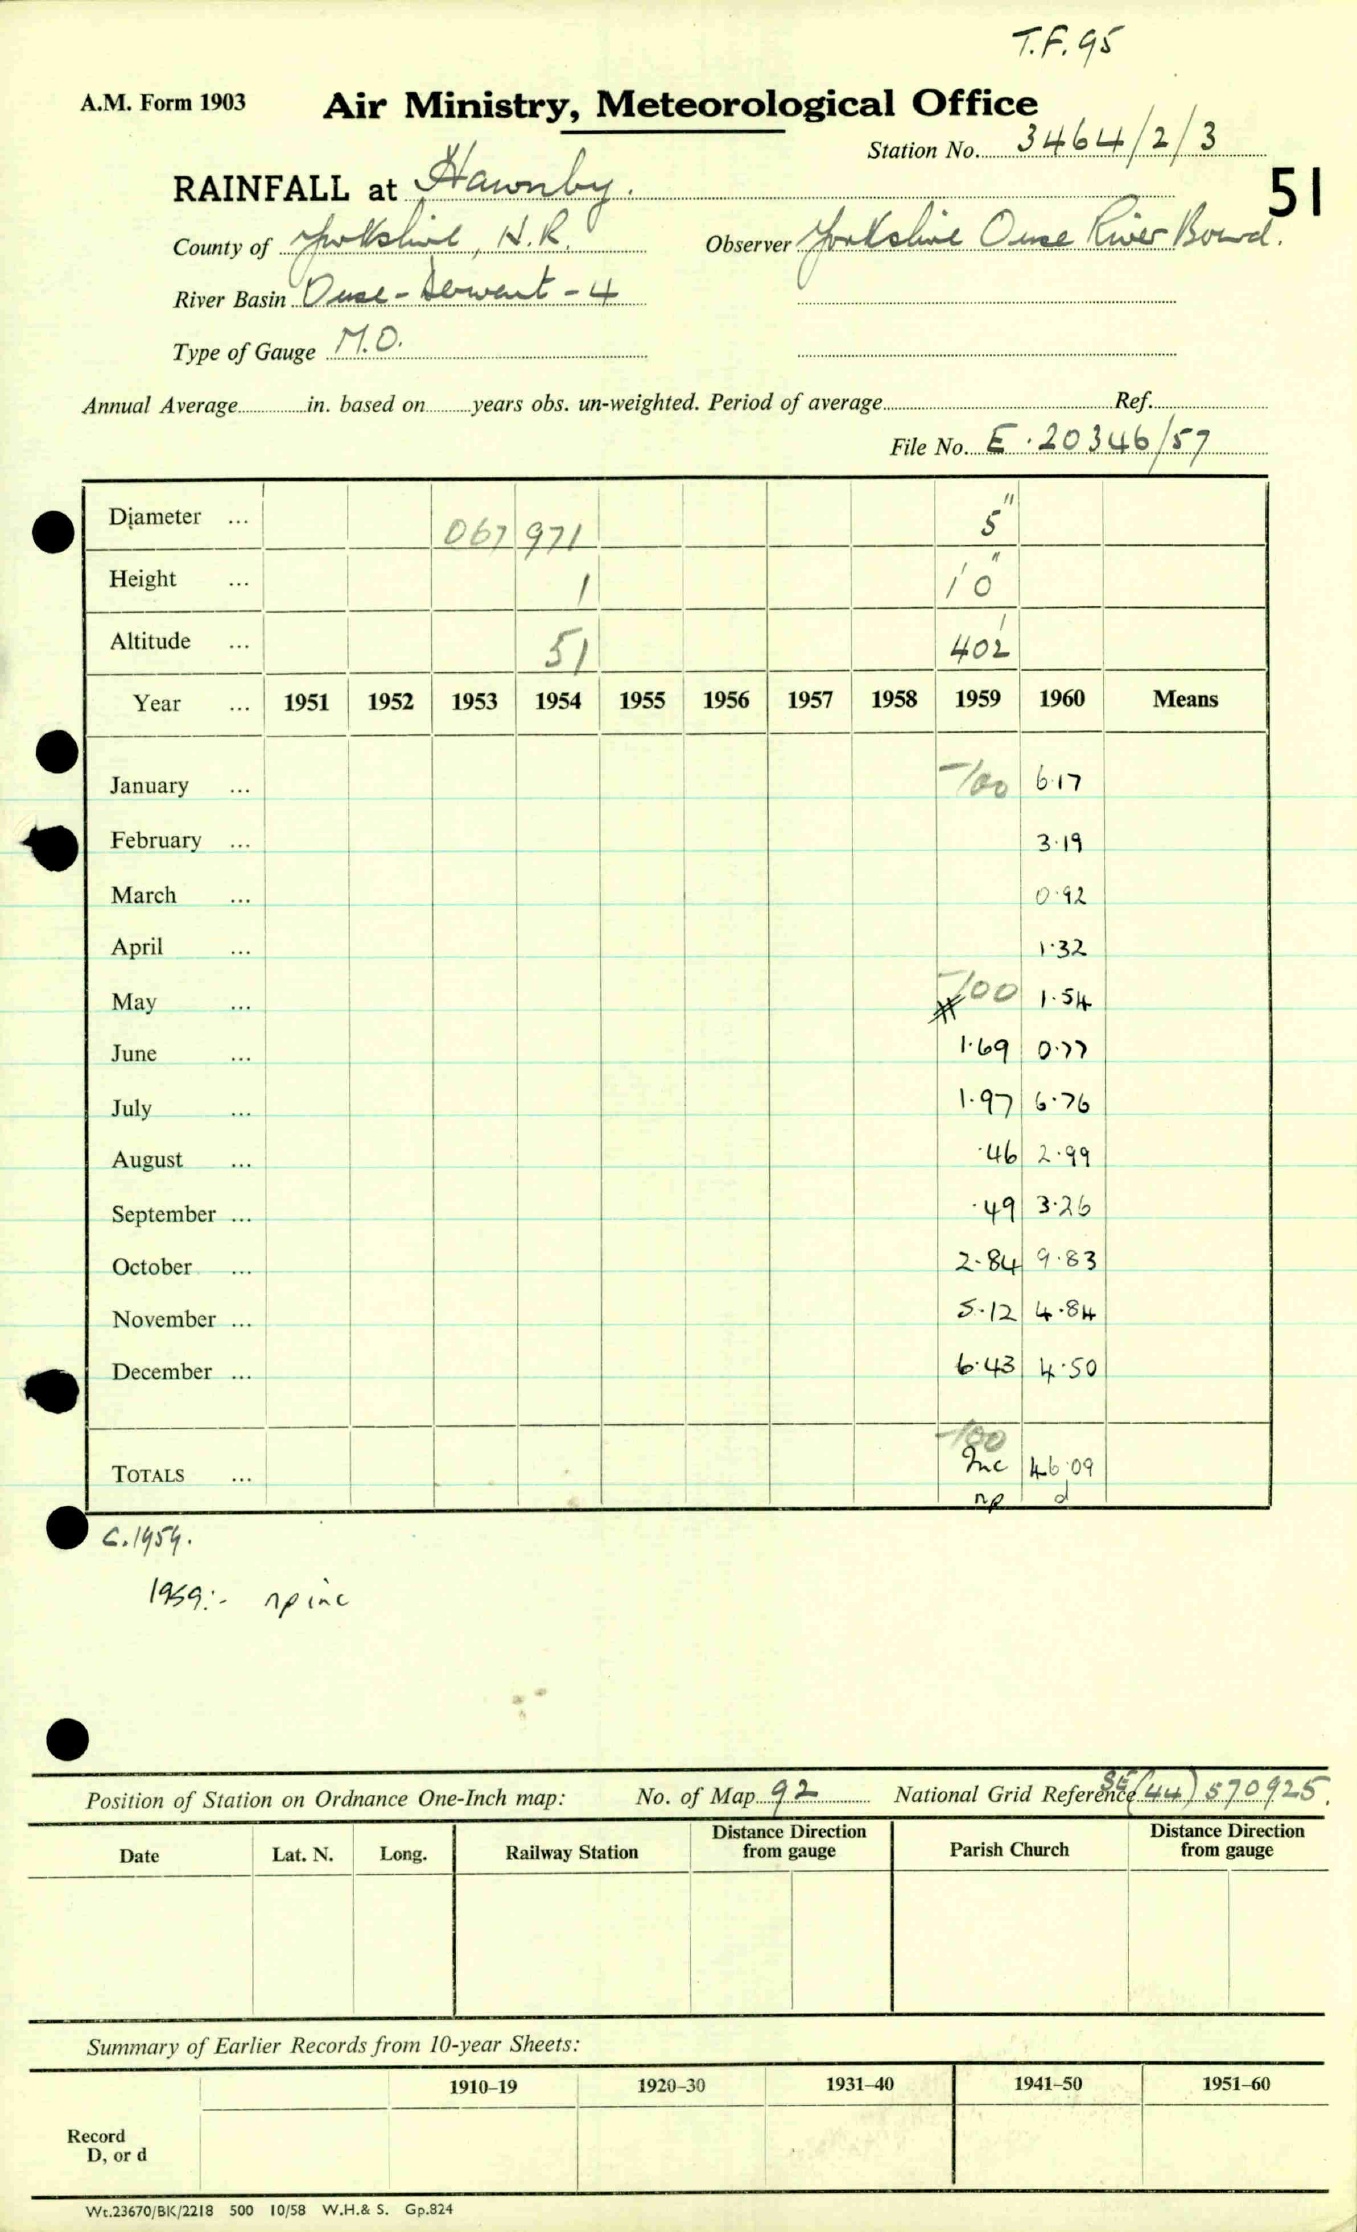 T.F. 95
A.M. Form 1903 Air Ministry, Meteorological Office
Station No. 3464/2/3
RAINFALL at Hawnby. 51
County of Yorkshire, N.R. Observer Yorkshire Ouse River Board.
River Basin Ouse - Derwent - 4
Type of Gauge M.O.
Annual Average in. based on years obs. un-weighted. Period of average Ref.
File No. E.20346/57
Diameter ... 067 971 5"
Height ... 1 1' 0"
Altitude ... 51 402'
Year ... 1951 1952 1953 1954 1955 1956 1957 1958 1959 1960 Means
January ... -100 6.17
February ... 3.19
March ... 0.92
April ... 1.32
May ... -100 1.54
June ... 1.69 0.77
July ... 1.97 6.76
August ... .46 2.99
September ... .49 3.26
October ... 2.84 9.83
November ... 5.12 4.84
December ... 6.43 4.50
-100
TOTALS ... Inc 46.09
np d
C. 1959.
1959:- np inc
Position of Station on Ordnance One-Inch map: No. of Map 92 National Grid Reference SE (44) 570925.
Date Lat. N. Long. Railway Station Distance Direction from gauge Parish Church Distance Direction from gauge
Summary of Earlier Records from 10-year Sheets:
1910-19 1920-30 1931-40 1941-50 1951-60
Record
D, or d
Wt.23670/BK/2218 500 10/58 W.H.& S. Gp.824